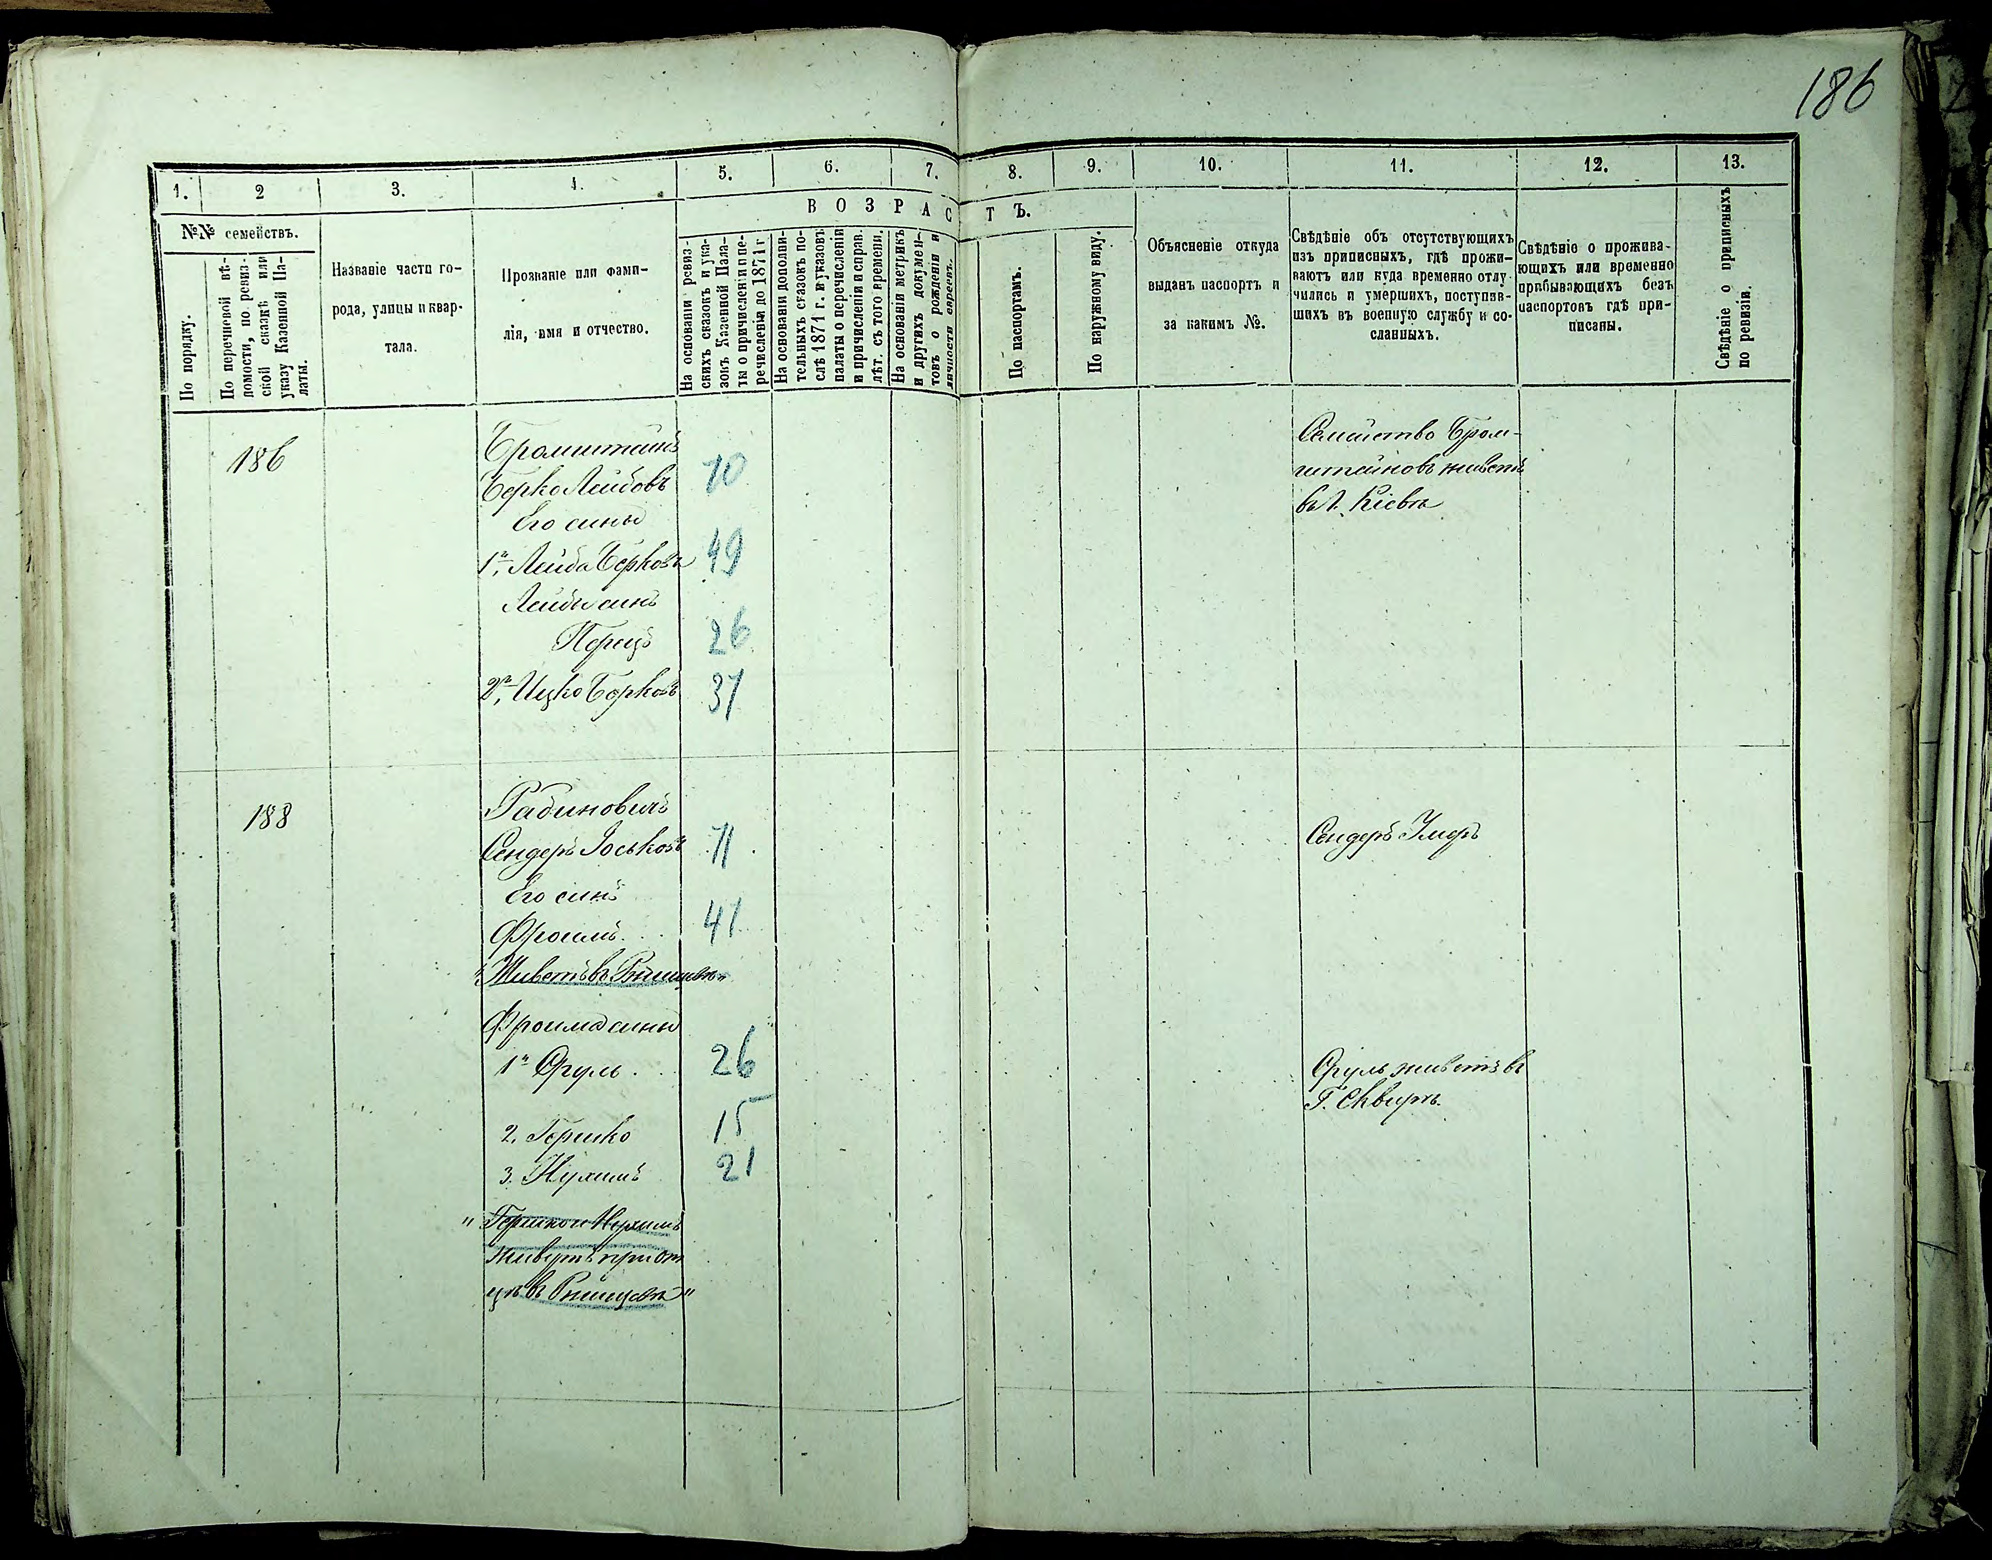 186
1.
2
3.
4.
5.
6.
7.
8.
9.
10.
11.
12.
13.
№№ семействъ.
По порядку.
По перечневой вѣ-
домости, по ревиз-
ской сказкѣ или
указу Казенной Па-
латы.
Названіе части го-
рода, улицы и квар-
тала.
Прозваніе или фами-
лія, имя и отчество.
ВОЗРАСТЪ.
На основаніи ревиз-
скихъ сказокъ и ука-
зовъ Казенной Пала-
ты о причисленіи и пе-
речисленіи до 1871 г
На основаніи дополни-
тельныхъ сказокъ по-
слѣ 1871 г. и указовъ
палаты о перечисленіи
и причисленіи справ.
лѣт. съ того времени.
На основаніи метрикъ
и другихъ докумен-
товъ о рожденіи и
личности евреевъ.
По паспортамъ.
По наружному виду.
Объясненіе откуда
выданъ паспортъ и
за какимъ №.
Свѣдѣніе объ отсутствующихъ
изъ приписныхъ, гдѣ прожи-
ваютъ или куда временно отлу-
чились и умершихъ, поступив-
шихъ въ военную службу и со-
сланныхъ.
Свѣдѣніе о прожива-
ющихъ или временно
прибывающихъ безъ
паспортовъ гдѣ при-
писаны.
Свѣдѣніе о приписныхъ
по ревизіи.
186
Бромштейнъ
Берко Лейбовъ 70
Его сины
1й, Лейба Берковъ 49
Лейбы синъ
Перецъ 26
2й, Ицко Берковъ 37
Семейство Бром-
штейновъ живетъ
въ г. Кіевѣ
188
Рабиновичъ
Сендеръ Іоськовъ 71
Сендеръ Умеръ
Его синъ
Фроимъ 41
"Живетъ въ Ржищевѣ"
Фроима сины
1й Сруль 26
Сруль живетъ въ
Г. Сквирѣ.
2. Гершко 15
3. Нухимъ 21
"Гершко и Нухимъ
живутъ при от
цѣ въ Ржищевѣ"